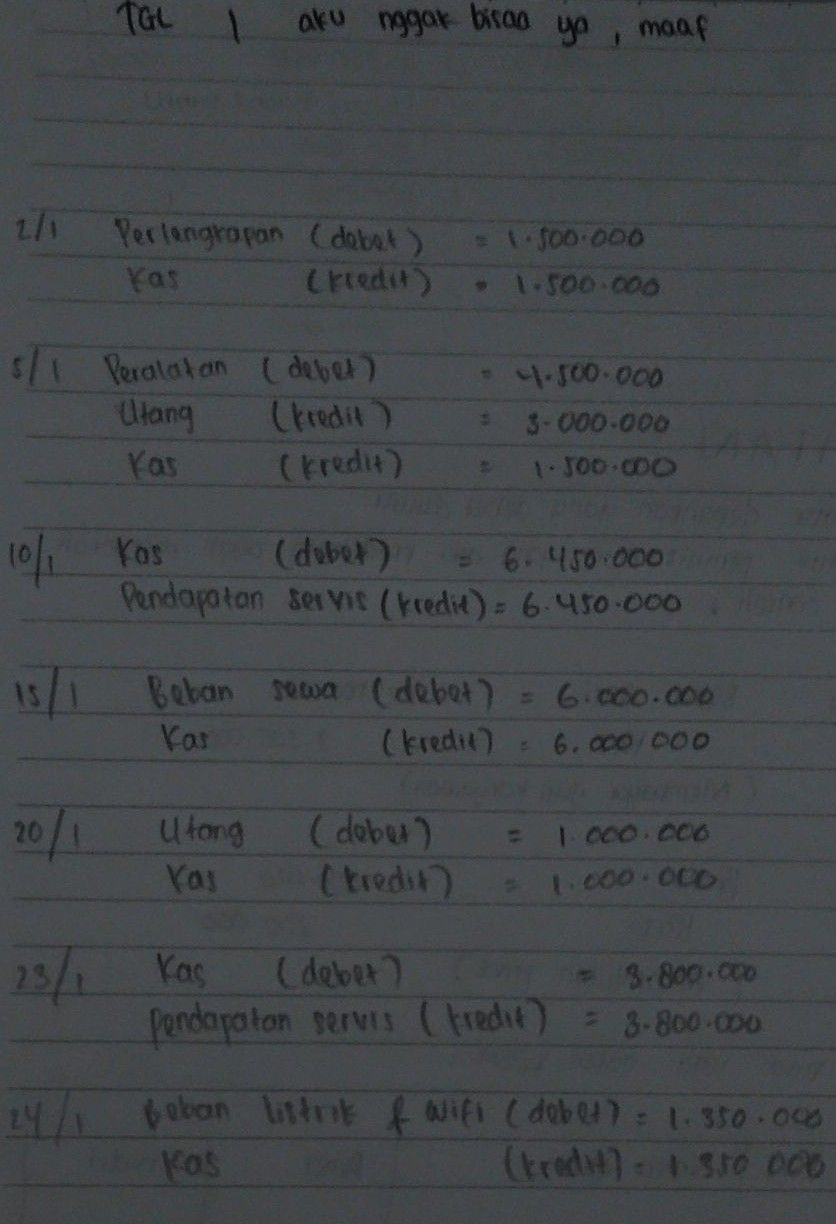 TGL 1 aku nggak bisaa ya, maaf
2/1 Perlengkapan (debet) = 1.500.000
Kas (kredit) = 1.500.000
5/1 Peralatan (debet) = 4.500.000
Utang (kredit) = 3.000.000
Kas (kredit) = 1.500.000
10/1 Kas (debet) = 6.450.000
Pendapatan servis (kredit) = 6.450.000
15/1 Beban sewa (debet) = 6.000.000
Kas (kredit) = 6.000.000
20/1 Utang (debet) = 1.000.000
Kas (kredit) = 1.000.000
23/1 Kas (debet) = 3.800.000
Pendapatan servis (kredit) = 3.800.000
24/1 Beban listrik & wifi (debet) = 1.350.000
Kas (kredit) = 1.350 000